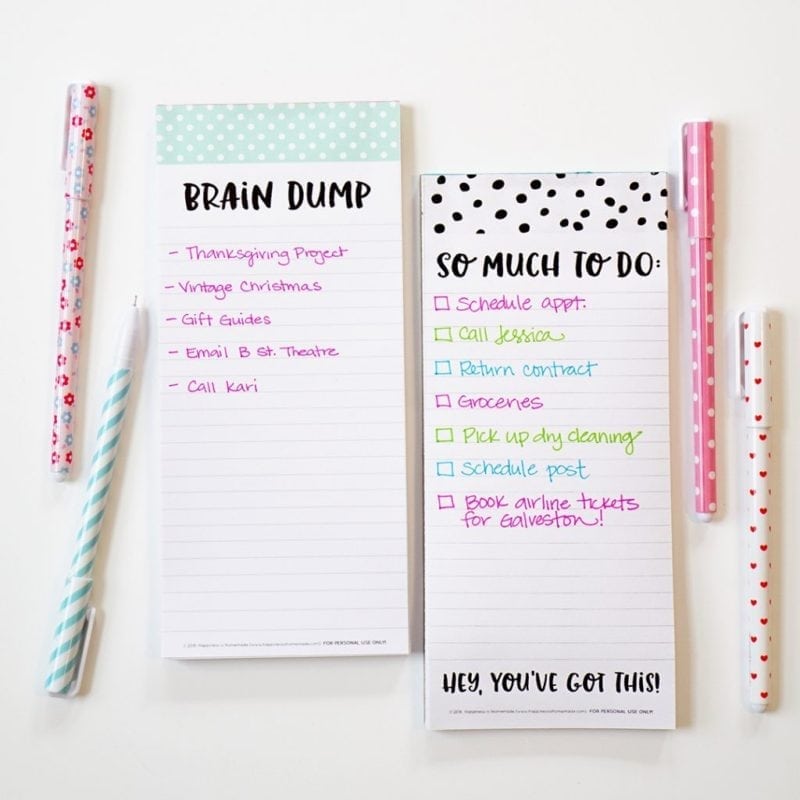 BRAIN DUMP
- Thanksgiving Project
- Vintage Christmas
- Gift Guides
- Email B St. Theatre
- Call Kari
© 2018 Happiness is Homemade (www.happinessishomemade.com) FOR PERSONAL USE ONLY!
SO MUCH TO DO:
Schedule appt.
Call Jessica
Return contract
Groceries
Pick up dry cleaning
Schedule post
Book airline tickets
for Galveston!
HEY, YOU'VE GOT THIS!
Happiness is Homemade (www.happinessishomemade.com) FOR PERSONAL USE ONLY!